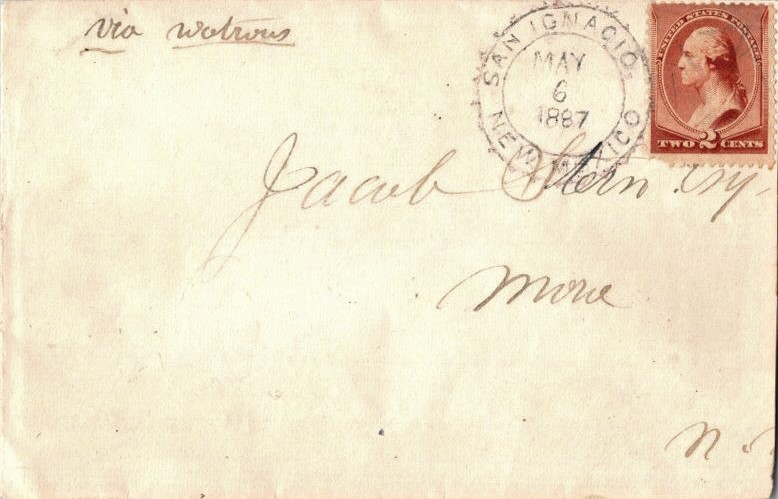 via Watrous
SAN IGNACIO
MAY
6
1887
NEW MEXICO
UNITED STATES POSTAGE
TWO 2 CENTS
Jacob Stern Esq.
Mora
N.